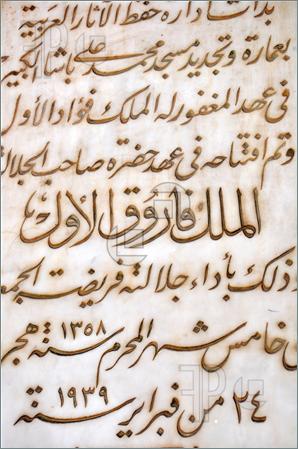 بدأت إدارة حفظ الآثار العربية
بعمارة وتجديد مسجد محمد علي باشا الكبير
في عهد المغفور له الملك فؤاد الأول
وتم افتتاحه في عهد حضرة صاحب الجلال
الملك فاروق الأول
ذلك بأداء جلالته فريضة الجمع
خامس شهر المحرم سنة ١٣٥٨ هجر
٢٤ من فبراير سنة ١٩٣٩